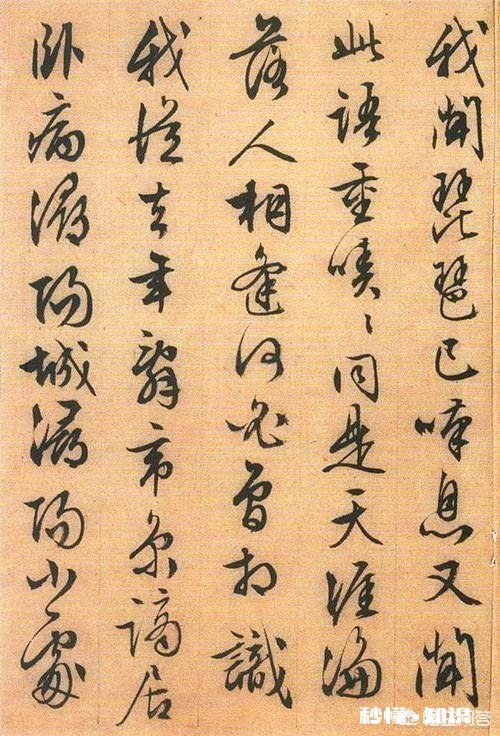 我聞琵琶已嘆息又聞
此語重唧〻同是天涯淪
落人相逢何必曾相識
我從去年辭帝京謫居
臥病潯陽城潯陽小處
秒懂·知识